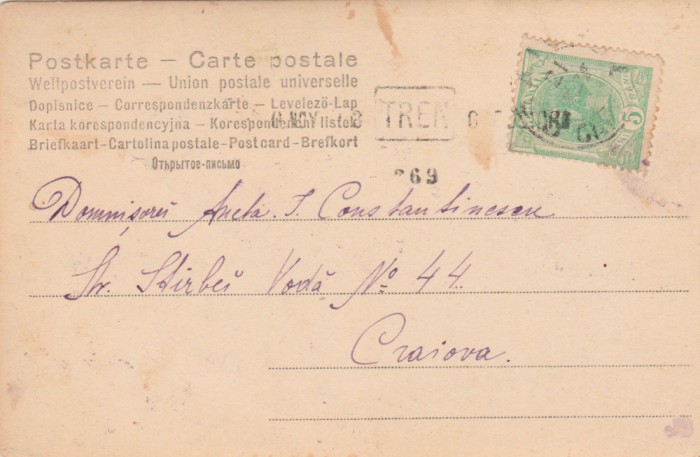 Postkarte — Carte postale
Weltpostverein — Union postale universelle
Dopisnice – Correspondenzkarte – Levelező-Lap
Karta korespondencyjna – Korespondent listek
Briefkaart–Cartolina postale–Postcard–Brefkort
Открытое-письмо
TREN
Domnișorei Aneta I. Constantinescu
Str. Știrbei Vodă № 44.
Craiova.
5